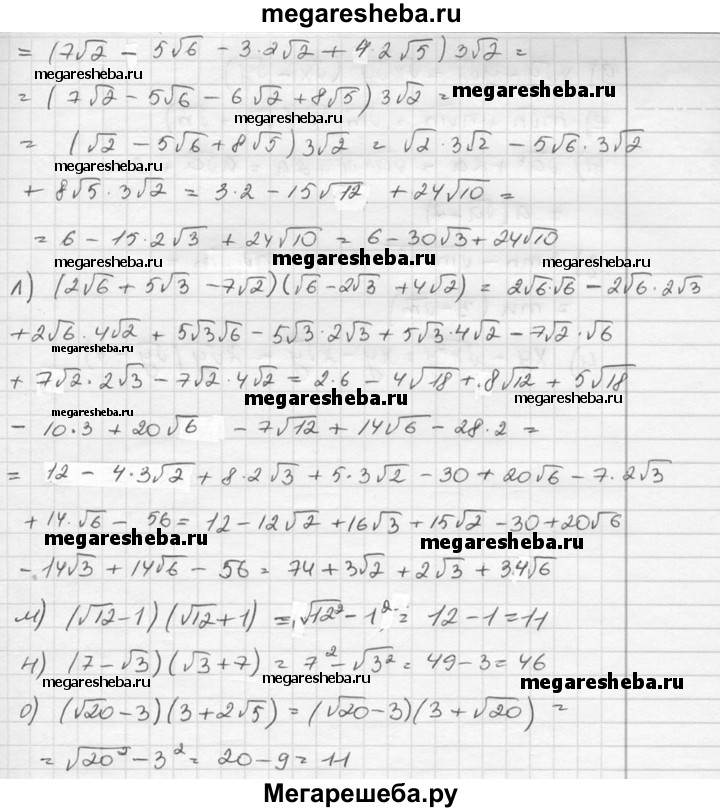 megaresheba.ru
= (7√2 − 5√6 − 3·2√2 + 4·2√5) 3√2 =
megaresheba.ru
= (7√2 − 5√6 − 6√2 + 8√5) 3√2 =
megaresheba.ru
megaresheba.ru
= (√2 − 5√6 + 8√5) 3√2 = √2·3√2 − 5√6·3√2
megaresheba.ru
+ 8√5·3√2 = 3·2 − 15√12 + 24√10 =
megaresheba.ru
= 6 − 15·2√3 + 24√10 = 6 − 30√3 + 24√10
megaresheba.ru
megaresheba.ru
megaresheba.ru
л) (2√6 + 5√3 − 7√2)(√6 − 2√3 + 4√2) = 2√6·√6 − 2√6·2√3
+ 2√6·4√2 + 5√3√6 − 5√3·2√3 + 5√3·4√2 − 7√2·√6
megaresheba.ru
+ 7√2·2√3 − 7√2·4√2 = 2·6 − 4√18 + 8√12 + 5√18
megaresheba.ru
megaresheba.ru
megaresheba.ru
− 10·3 + 20√6 − 7√12 + 14√6 − 28·2 =
= 12 − 4·3√2 + 8·2√3 + 5·3√2 − 30 + 20√6 − 7·2√3
+ 14·√6 − 56 = 12 − 12√2 + 16√3 + 15√2 − 30 + 20√6
megaresheba.ru
megaresheba.ru
− 14√3 + 14√6 − 56 = 74 + 3√2 + 2√3 + 34√6
м) (√12 − 1)(√12 + 1) = √12² − 1² = 12 − 1 = 11
н) (7 − √3)(√3 + 7) = 7² − √3² = 49 − 3 = 46
megaresheba.ru
megaresheba.ru
megaresheba.ru
о) (√20 − 3)(3 + 2√5) = (√20 − 3)(3 + √20) =
= √20² − 3² = 20 − 9 = 11
Мегарешеба.ру